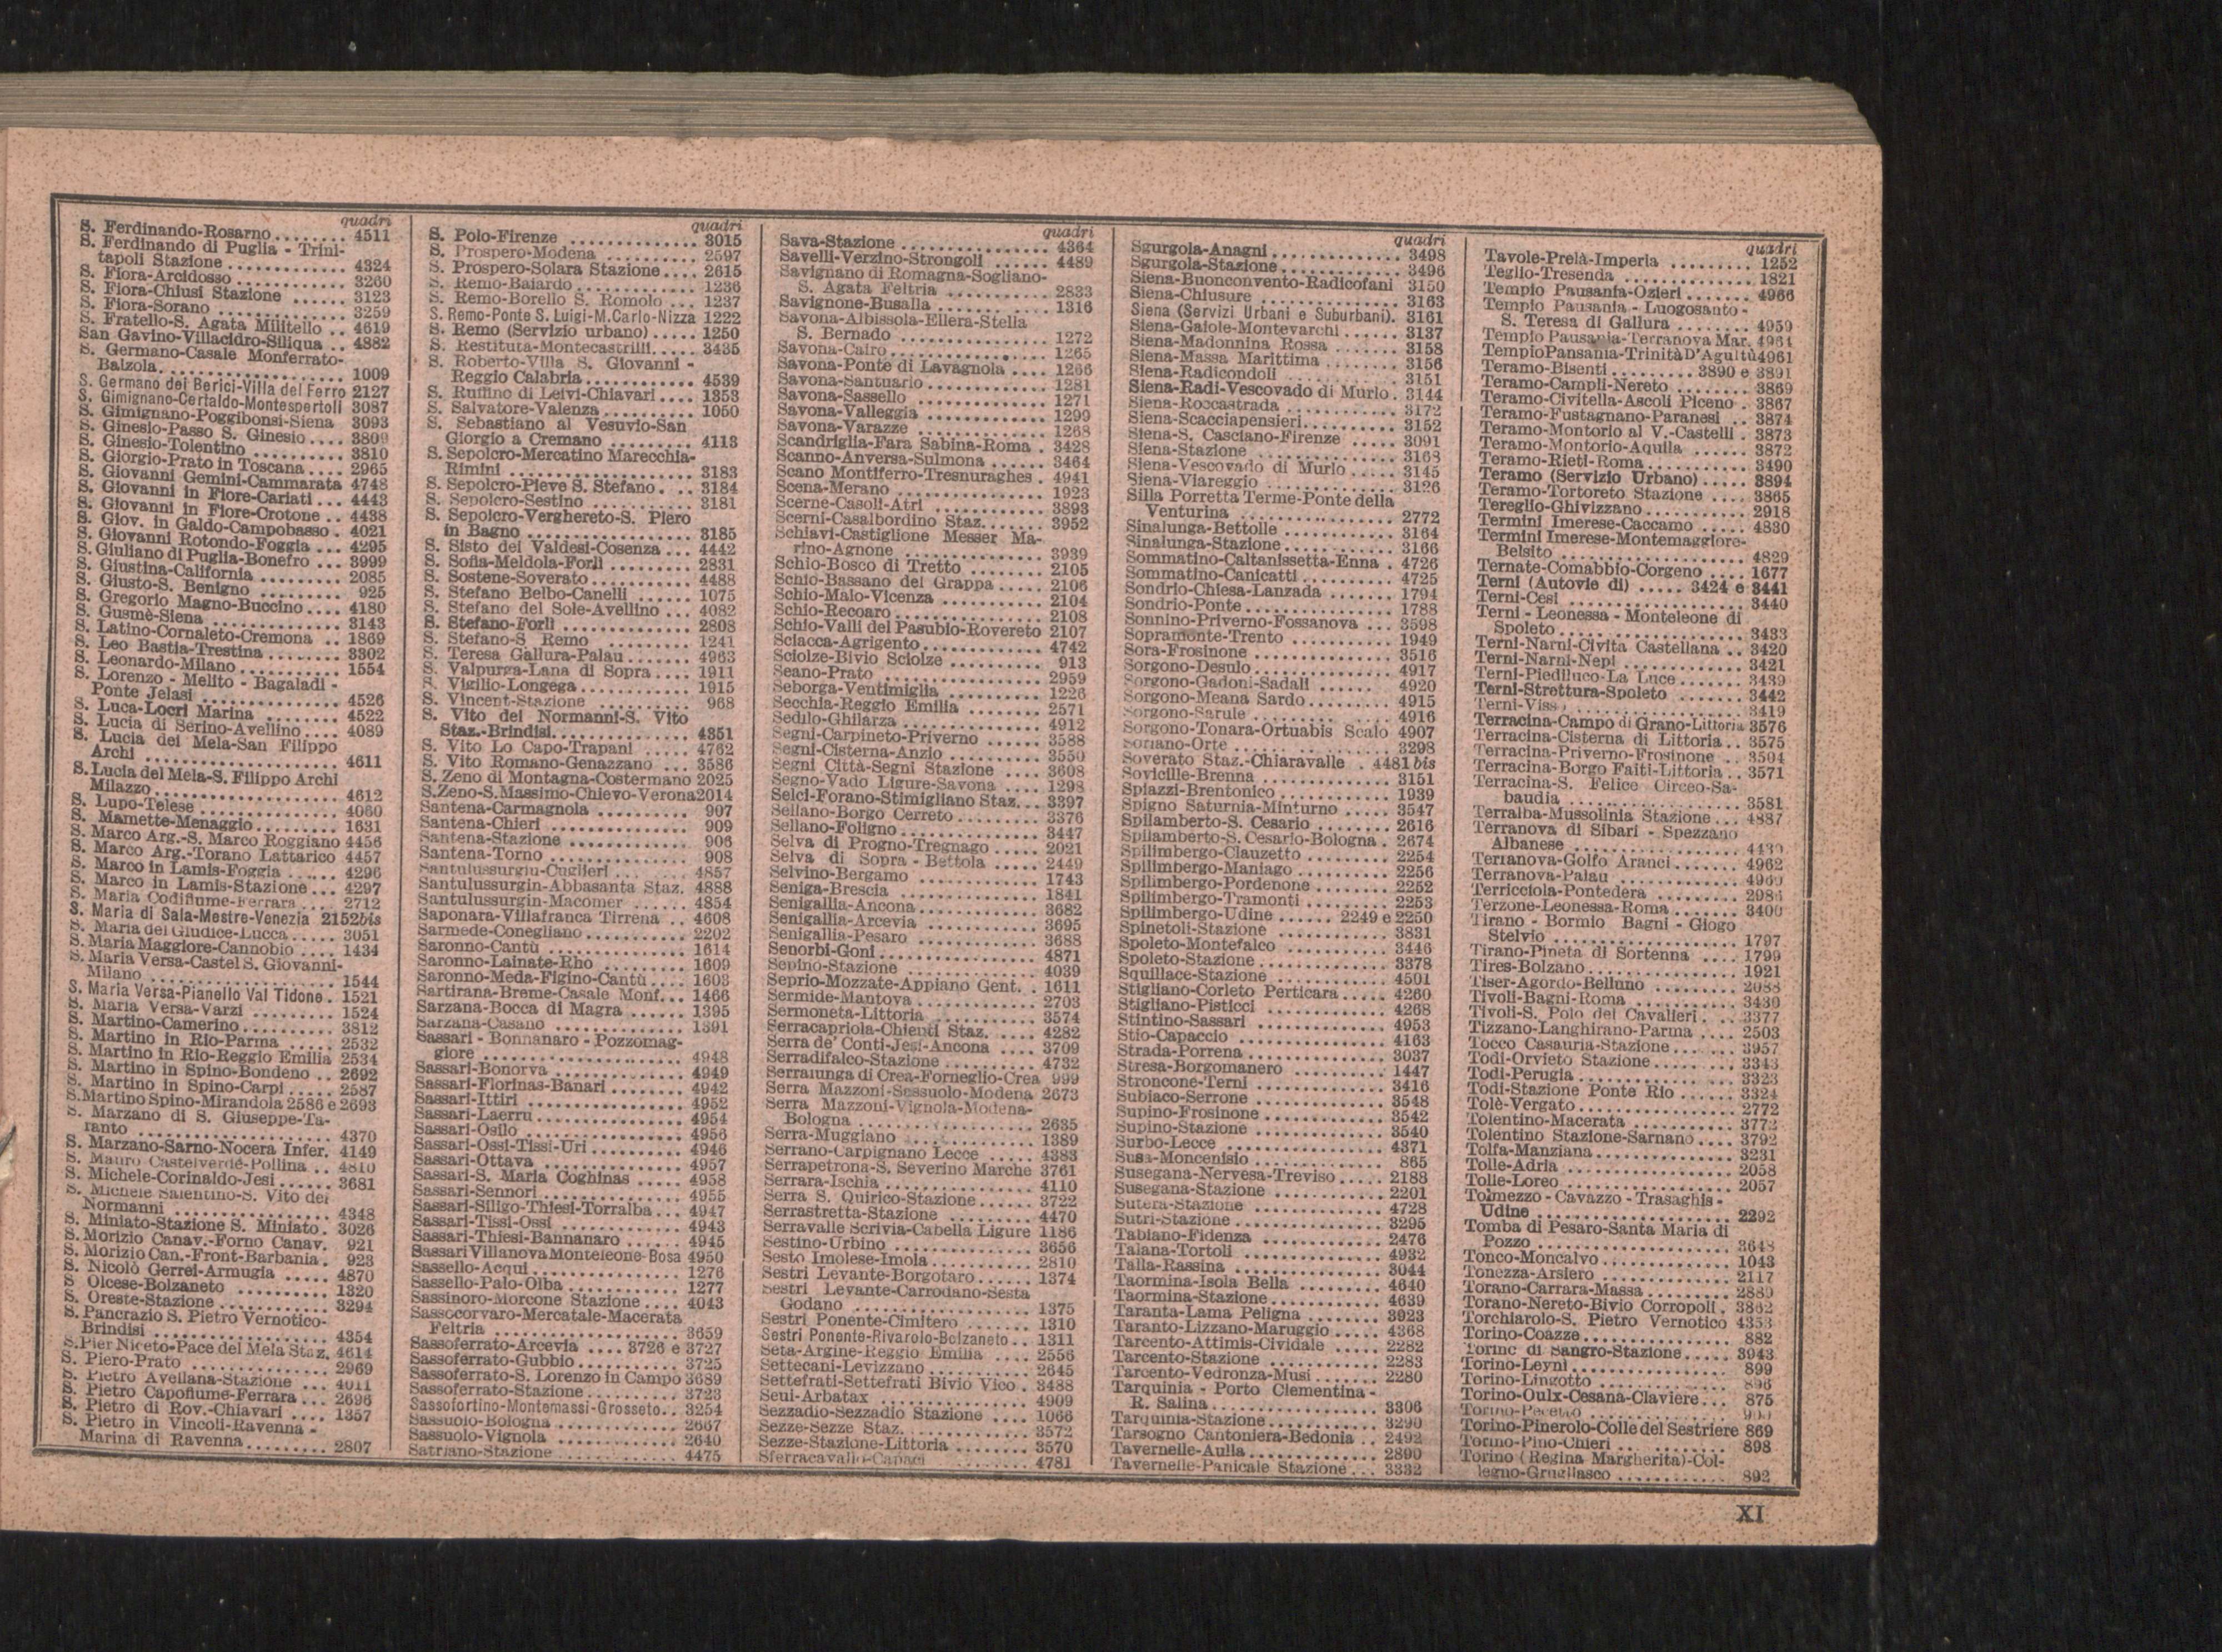 quadri
S. Ferdinando-Rosarno ........ 4511
S. Ferdinando di Puglia - Trini-
tapoli Stazione ............ 4324
S. Fiora-Arcidosso ............ 3260
S. Fiora-Chiusi Stazione ...... 3123
S. Fiora-Sorano ............... 3259
S. Fratello-S. Agata Militello .. 4619
San Gavino-Villacidro-Siliqua .. 4882
S. Germano-Casale Monferrato-
Balzola. .................... 1009
S. Germano dei Berici-Villa del Ferro 2127
S. Gimignano-Certaldo-Montespertoli 3087
S. Gimignano-Poggibonsi-Siena 3093
S. Ginesio-Passo S. Ginesio .... 3809
S. Ginesio-Tolentino .......... 3810
S. Giorgio-Prato in Toscana .... 2965
S. Giovanni Gemini-Cammarata 4748
S. Giovanni in Fiore-Cariati ... 4443
S. Giovanni in Fiore-Crotone .. 4438
S. Giov. in Galdo-Campobasso . 4021
S. Giovanni Rotondo-Foggia ... 4295
S. Giuliano di Puglia-Bonefro ... 3999
S. Giustina-California ......... 2085
S. Giusto-S. Benigno ......... 925
S. Gregorio Magno-Buccino .... 4180
S. Gusmè-Siena .............. 3143
S. Latino-Cornaleto-Cremona .. 1869
S. Leo Bastia-Trestina ........ 3302
S. Leonardo-Milano ........... 1554
S. Lorenzo - Melito - Bagaladi -
Ponte Jelasi ................ 4526
S. Luca-Locri Marina ......... 4522
S. Lucia di Serino-Avellino .... 4089
S. Lucia del Mela-San Filippo
Archi ...................... 4611
S. Lucia del Mela-S. Filippo Archi
Milazzo .................... 4612
S. Lupo-Telese ............... 4060
S. Mamette-Menaggio ......... 1631
S. Marco Arg.-S. Marco Roggiano 4456
S. Marco Arg.-Torano Lattarico 4457
S. Marco in Lamis-Foggia ...... 4296
S. Marco in Lamis-Stazione ... 4297
S. Maria Codifiume-Ferrara .... 2712
S. Maria di Sala-Mestre-Venezia 2152bis
S. Maria del Giudice-Lucca ..... 3051
S. Maria Maggiore-Cannobio .... 1434
S. Maria Versa-Castel S. Giovanni-
Milano ..................... 1544
S. Maria Versa-Pianello Val Tidone . 1521
S. Maria Versa-Varzi ......... 1524
S. Martino-Camerino .......... 3812
S. Martino in Rio-Parma ..... 2532
S. Martino in Rio-Reggio Emilia 2534
S. Martino in Spino-Bondeno .. 2692
S. Martino in Spino-Carpi ..... 2587
S. Martino Spino-Mirandola 2586 e 2693
S. Marzano di S. Giuseppe-Ta-
ranto ...................... 4370
S. Marzano-Sarno-Nocera Infer. 4149
S. Mauro Castelverde-Pollina .. 4810
S. Michele-Corinaldo-Jesi ...... 3681
S. Michele Salentino-S. Vito dei
Normanni .................. 4348
S. Miniato-Stazione S. Miniato . 3026
S. Morizio Canav.-Forno Canav. 921
S. Morizio Can.-Front-Barbania . 923
S. Nicolò Gerrei-Armugia ..... 4870
S Olcese-Bolzaneto .......... 1320
S. Oreste-Stazione ............ 3294
S. Pancrazio S. Pietro Vernotico-
Brindisi .................... 4354
S. Pier Niceto-Pace del Mela Staz. 4614
S. Piero-Prato ............... 2969
S. Pietro Avellana-Stazione ... 4011
S. Pietro Capofiume-Ferrara ... 2696
S. Pietro di Rov.-Chiavari .... 1357
S. Pietro in Vincoli-Ravenna -
Marina di Ravenna ......... 2807
quadri
S. Polo-Firenze .............. 3015
S. Prospero-Modena .......... 2597
S. Prospero-Solara Stazione .... 2615
S. Remo-Baiardo ............. 1236
S. Remo-Borello S. Romolo ... 1237
S. Remo-Ponte S. Luigi-M. Carlo-Nizza 1222
S. Remo (Servizio urbano) ..... 1250
S. Restituta-Montecastrilli ..... 3435
S. Roberto-Villa S. Giovanni -
Reggio Calabria ............ 4539
S. Ruffino di Leivi-Chiavari .... 1353
S. Salvatore-Valenza .......... 1050
S. Sebastiano al Vesuvio-San
Giorgio a Cremano ......... 4113
S. Sepolcro-Mercatino Marecchia-
Rimini .................... 3183
S. Sepolcro-Pieve S. Stefano . .. 3184
S. Sepolcro-Sestino ........... 3181
S. Sepolcro-Verghereto-S. Piero
in Bagno .................. 3185
S. Sisto dei Valdesi-Cosenza ... 4442
S. Sofia-Meldola-Forlì ........ 2831
S. Sostene-Soverato ........... 4488
S. Stefano Belbo-Canelli ...... 1075
S. Stefano del Sole-Avellino ... 4082
S. Stefano-Forlì .............. 2808
S. Stefano-S Remo .......... 1241
S. Teresa Gallura-Palau ....... 4963
S. Valpurga-Lana di Sopra .... 1911
S. Vigilio-Longega ............ 1915
S. Vincent-Stazione .......... 968
S. Vito dei Normanni-S. Vito
Staz.-Brindisi ............... 4351
S. Vito Lo Capo-Trapani ..... 4762
S. Vito Romano-Genazzano ... 3586
S. Zeno di Montagna-Costermano 2025
S. Zeno-S. Massimo-Chievo-Verona 2014
Santena-Carmagnola .......... 907
Santena-Chieri ............... 909
Santena-Stazione ............. 906
Santena-Torno ............... 908
Santulussurgiu-Cuglieri ........ 4857
Santulussurgin-Abbasanta Staz. 4888
Santulussurgin-Macomer ...... 4854
Saponara-Villafranca Tirrena .. 4608
Sarmede-Conegliano ........... 2202
Saronno-Cantù ............... 1614
Saronno-Lainate-Rho ......... 1609
Saronno-Meda-Figino-Cantù .... 1603
Sartirana-Breme-Casale Monf... 1466
Sarzana-Bocca di Magra ...... 1395
Sarzana-Casano .............. 1391
Sassari - Bonnanaro - Pozzomag-
giore ...................... 4948
Sassari-Bonorva .............. 4949
Sassari-Florinas-Banari ........ 4942
Sassari-Ittiri ................. 4952
Sassari-Laerru ................ 4954
Sassari-Osilo ................. 4956
Sassari-Ossi-Tissi-Uri .......... 4946
Sassari-Ottava ................ 4957
Sassari-S. Maria Coghinas ..... 4958
Sassari-Sennori ............... 4955
Sassari-Siligo-Thiesi-Torralba ... 4947
Sassari-Tissi-Ossi ............. 4943
Sassari-Thiesi-Bannanaro ...... 4945
Sassari Villanova Monteleone-Bosa 4950
Sassello-Acqui ................ 1276
Sassello-Palo-Olba ............ 1277
Sassinoro-Morcone Stazione .... 4043
Sassocorvaro-Mercatale-Macerata
Feltria .................... 3659
Sassoferrato-Arcevia .... 3726 e 3727
Sassoferrato-Gubbio ........... 3725
Sassoferrato-S. Lorenzo in Campo 3689
Sassoferrato-Stazione .......... 3723
Sassofortino-Montemassi-Grosseto .. 3254
Sassuolo-Bologna ............. 2667
Sassuolo-Vignola ............. 2640
Satriano-Stazione ............. 4475
quadri
Sava-Stazione ................ 4364
Savelli-Verzino-Strongoli ...... 4489
Savignano di Romagna-Sogliano-
S. Agata Feltria ........... 2833
Savignone-Busalla ............. 1316
Savona-Albissola-Ellera-Stella
S. Bernado ................ 1272
Savona-Cairo ................. 1265
Savona-Ponte di Lavagnola .... 1266
Savona-Santuario ............. 1281
Savona-Sassello ............... 1271
Savona-Valleggia .............. 1299
Savona-Varazze .............. 1268
Scandriglia-Fara Sabina-Roma . 3428
Scanno-Anversa-Sulmona ...... 3464
Scano Montiferro-Tresnuraghes . 4941
Scena-Merano ................ 1923
Scerne-Casoli-Atri ............ 3893
Scerni-Casalbordino Staz. ...... 3952
Schiavi-Castiglione Messer Ma-
rino-Agnone ............... 3939
Schio-Bosco di Tretto ......... 2105
Schio-Bassano del Grappa ..... 2106
Schio-Malo-Vicenza ........... 2104
Schio-Recoaro ................ 2108
Schio-Valli del Pasubio-Rovereto 2107
Sciacca-Agrigento ............. 4742
Sciolze-Bivio Sciolze .......... 913
Seano-Prato ................. 2959
Seborga-Ventimiglia .......... 1226
Secchia-Reggio Emilia ........ 2571
Sedilo-Ghilarza ............... 4912
Segni-Carpineto-Priverno ...... 3588
Segni-Cisterna-Anzio .......... 3550
Segni Città-Segni Stazione .... 3608
Segno-Vado Ligure-Savona .... 1298
Selci-Forano-Stimigliano Staz. .. 3397
Sellano-Borgo Cerreto ......... 3376
Sellano-Foligno ............... 3447
Selva di Progno-Tregnago ..... 2021
Selva di Sopra - Bettola ...... 2449
Selvino-Bergamo ............. 1743
Seniga-Brescia ............... 1841
Senigallia-Ancona ............. 3682
Senigallia-Arcevia ............. 3695
Senigallia-Pesaro ............. 3688
Senorbi-Goni ................. 4871
Sepino-Stazione .............. 4039
Seprio-Mozzate-Appiano Gent. . 1611
Sermide-Mantova ............. 2703
Sermoneta-Littoria ............ 3574
Serracapriola-Chienti Staz. .... 4282
Serra de' Conti-Jesi-Ancona .... 3709
Serradifalco-Stazione .......... 4732
Serralunga di Crea-Forneglio-Crea 999
Serra Mazzoni-Sassuolo-Modena 2673
Serra Mazzoni-Vignola-Modena-
Bologna ................... 2635
Serra-Muggiano .............. 1389
Serrano-Carpignano Lecce ..... 4383
Serrapetrona-S. Severino Marche 3761
Serrara-Ischia ................ 4110
Serra S. Quirico-Stazione ...... 3722
Serrastretta-Stazione .......... 4470
Serravalle Scrivia-Cabella Ligure 1186
Sestino-Urbino ............... 3656
Sesto Imolese-Imola .......... 2810
Sestri Levante-Borgotaro ...... 1374
Sestri Levante-Carrodano-Sesta
Godano ................... 1375
Sestri Ponente-Cimitero ....... 1310
Sestri Ponente-Rivarolo-Bolzaneto .. 1311
Seta-Argine-Reggio Emilia .... 2556
Settecani-Levizzano ........... 2645
Settefrati-Settefrati Bivio Vico . 3488
Seui-Arbatax ................. 4909
Sezzadio-Sezzadio Stazione .... 1066
Sezze-Sezze Staz. ............ 3572
Sezze-Stazione-Littoria ........ 3570
Sferracavallo-Capaci ........ 4781
quadri
Sgurgola-Anagni .............. 3498
Sgurgola-Stazione ............. 3496
Siena-Buonconvento-Radicofani 3150
Siena-Chiusure ............... 3163
Siena (Servizi Urbani e Suburbani). 3161
Siena-Gaiole-Montevarchi ...... 3137
Siena-Madonnina Rossa ....... 3158
Siena-Massa Marittima ........ 3156
Siena-Radicondoli ............ 3151
Siena-Radi-Vescovado di Murlo . 3144
Siena-Roccastrada ............ 3172
Siena-Scacciapensieri .......... 3152
Siena-S. Casciano-Firenze ..... 3091
Siena-Stazione ............... 3168
Siena-Vescovado di Murlo ..... 3145
Siena-Viareggio ............... 3126
Silla Porretta Terme-Ponte della
Venturina ................. 2772
Sinalunga-Bettolle ............ 3164
Sinalunga-Stazione ............ 3166
Sommatino-Caltanissetta-Enna . 4726
Sommatino-Canicatti .......... 4725
Sondrio-Chiesa-Lanzada ....... 1794
Sondrio-Ponte ................ 1788
Sonnino-Priverno-Fossanova ... 3598
Sopramonte-Trento ........... 1949
Sora-Frosinone ............... 3516
Sorgono-Desulo ............... 4917
Sorgono-Gadoni-Sadali ...... 4920
Sorgono-Meana Sardo ......... 4915
Sorgono-Sarule ............... 4916
Sorgono-Tonara-Ortuabis Scalo 4907
Soriano-Orte ................. 3298
Soverato Staz.-Chiaravalle . 4481bis
Sovicille-Brenna .............. 3151
Spiazzi-Brentonico ............ 1939
Spigno Saturnia-Minturno ..... 3547
Spilamberto-S. Cesario ........ 2616
Spilamberto-S. Cesario-Bologna . 2674
Spilimbergo-Clauzetto ......... 2254
Spilimbergo-Maniago .......... 2256
Spilimbergo-Pordenone ........ 2252
Spilimbergo-Tramonti ......... 2253
Spilimbergo-Udine ...... 2249 e 2250
Spinetoli-Stazione ............ 3831
Spoleto-Montefalco ........... 3446
Spoleto-Stazione .............. 3378
Squillace-Stazione ............ 4501
Stigliano-Corleto Perticara ..... 4260
Stigliano-Pisticci ............. 4268
Stintino-Sassari .............. 4953
Stio-Capaccio ................ 4163
Strada-Porrena ............... 3037
Stresa-Borgomanero .......... 1447
Stroncone-Terni .............. 3416
Subiaco-Serrone .............. 3548
Supino-Frosinone ............. 3542
Supino-Stazione .............. 3540
Surbo-Lecce ................. 4371
Susa-Moncenisio .............. 865
Susegana-Nervesa-Treviso ..... 2183
Susegana-Stazione ............ 2201
Sutera-Stazione .............. 4728
Sutri-Stazione ................ 3295
Tabiano-Fidenza .............. 2476
Talana-Tortoli ............... 4932
Talla-Rassina ................ 3044
Taormina-Isola Bella ......... 4640
Taormina-Stazione ............ 4639
Taranta-Lama Peligna ........ 3923
Taranto-Lizzano-Maruggio ..... 4368
Tarcento-Attimis-Cividale ..... 2282
Tarcento-Stazione ............ 2283
Tarcento-Vedronza-Musi ....... 2280
Tarquinia - Porto Clementina -
R. Salina .................. 3306
Tarquinia-Stazione ............ 3290
Tarsogno Cantoniera-Bedonia .. 2492
Tavernelle-Aulla .............. 2890
Tavernelle-Panicale Stazione ... 3332
quadri
Tavole-Prelà-Imperia ......... 1252
Teglio-Tresenda .............. 1821
Tempio Pausania-Ozieri ....... 4966
Tempio Pausania - Luogosanto -
S. Teresa di Gallura ........ 4959
Tempio Pausania-Terranova Mar. 4964
Tempio Pansania-Trinità D'Agultù 4961
Teramo-Bisenti ......... 3890 e 3891
Teramo-Campli-Nereto ....... 3869
Teramo-Civitella-Ascoli Piceno . 3867
Teramo-Fustagnano-Paranesi .. 3874
Teramo-Montorio al V.-Castelli . 3873
Teramo-Montorio-Aquila ...... 3872
Teramo-Rieti-Roma ........... 3490
Teramo (Servizio Urbano) ..... 3894
Teramo-Tortoreto Stazione .... 3865
Tereglio-Ghivizzano ........... 2918
Termini Imerese-Caccamo ..... 4830
Termini Imerese-Montemaggiore-
Belsito .................... 4829
Ternate-Comabbio-Corgeno .... 1677
Terni (Autovie di) ..... 3424 e 3441
Terni-Cesi ................... 3440
Terni - Leonessa - Monteleone di
Spoleto .................... 3433
Terni-Narni-Civita Castellana .. 3420
Terni-Narni-Nepi ............. 3421
Terni-Piediluco-La Luce ....... 3439
Terni-Strettura-Spoleto ....... 3442
Terni-Visso .................. 3419
Terracina-Campo di Grano-Littoria 3576
Terracina-Cisterna di Littoria .. 3575
Terracina-Priverno-Frosinone ... 3504
Terracina-Borgo Faiti-Littoria .. 3571
Terracina-S. Felice Circeo-Sa-
baudia .................... 3581
Terralba-Mussolinia Stazione ... 4887
Terranova di Sibari - Spezzano
Albanese
Terranova-Golfo Aranci ....... 4962
Terranova-Palau
Terricciola-Pontedera
Terzone-Leonessa-Roma ....... 3400
Tirano - Bormio Bagni - Giogo
Stelvio .................... 1797
Tirano-Pineta di Sortenna .... 1799
Tires-Bolzano ................. 1921
Tiser-Agordo-Belluno ......... 2088
Tivoli-Bagni-Roma ........... 3430
Tivoli-S. Polo dei Cavalieri .... 3377
Tizzano-Langhirano-Parma .... 2503
Tocco Casauria-Stazione ....... 3957
Todi-Orvieto Stazione ......... 3343
Todi-Perugia ................. 3323
Todi-Stazione Ponte Rio ...... 3324
Tolè-Vergato ................. 2772
Tolentino-Macerata ........... 3772
Tolentino Stazione-Sarnano .... 3792
Tolfa-Manziana ............... 3231
Tolle-Adria .................. 2058
Tolle-Loreo .................. 2057
Tolmezzo - Cavazzo - Trasaghis -
Udine ..................... 2292
Tomba di Pesaro-Santa Maria di
Pozzo ..................... 3648
Tonco-Moncalvo .............. 1043
Tonezza-Arsiero .............. 2117
Torano-Carrara-Massa ........ 2889
Torano-Nereto-Bivio Corropoli . 3862
Torchiarolo-S. Pietro Vernotico 4353
Torino-Coazze ................ 882
Torino di Sangro-Stazione ..... 3943
Torino-Leynì ................. 899
Torino-Lingotto .............. 896
Torino-Oulx-Cesana-Claviere ... 875
Torino-Pecetto
Torino-Pinerolo-Colle del Sestriere 869
Torino-Pino-Chieri ........... 898
Torino (Regina Margherita)-Col-
legno-Grugliasco ............ 892
XI